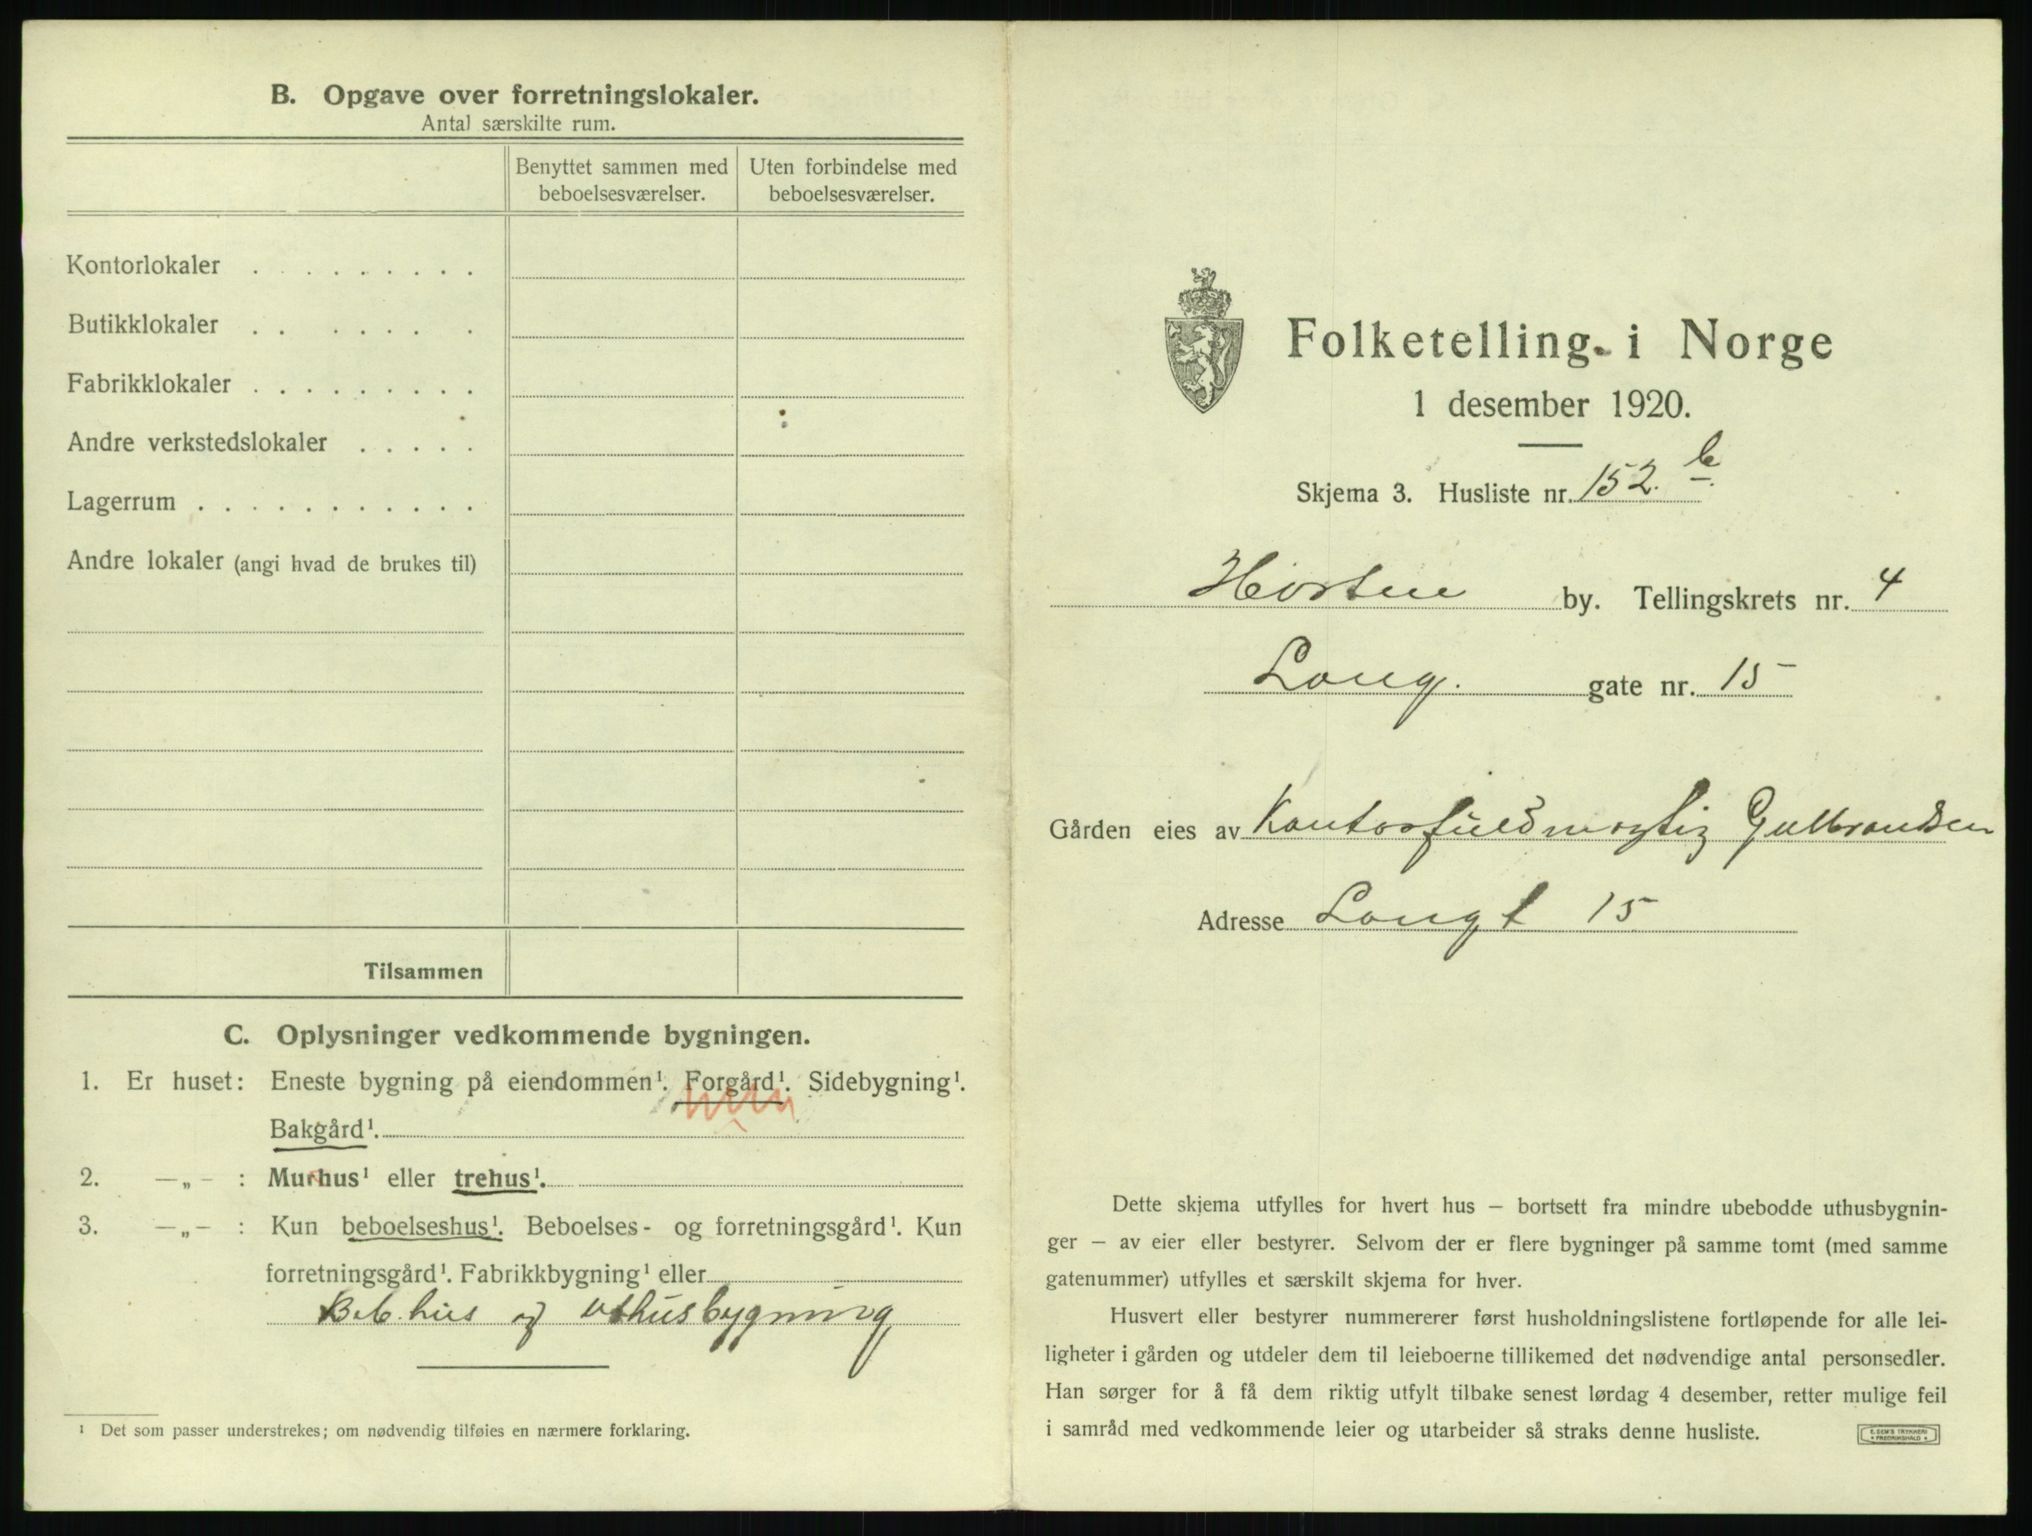 B. Opgave over forretningslokaler.
Antal særskilte rum.
Benyttet sammen med beboelsesværelser.
Uten forbindelse med beboelsesværelser.
Kontorlokaler . . . . . . . . .
Butikklokaler . . . . . . .
Fabrikklokaler . . . . . . . . .
Andre verkstedslokaler . . . . .
Lagerrum . . . . . . . . . . .
Andre lokaler (angi hvad de brukes til)
Tilsammen
C. Oplysninger vedkommende bygningen.
1. Er huset: Eneste bygning på eiendommen¹. Forgård¹. Sidebygning¹.
Bakgård¹.
2. —„— : Murhus¹ eller trehus¹.
3. —„— : Kun beboelseshus¹. Beboelses- og forretningsgård¹. Kun
forretningsgård¹. Fabrikkbygning¹ eller
Beb. hus og uthusbygning
¹ Det som passer understrekes; om nødvendig tilføies en nærmere forklaring.
Folketelling i Norge
1 desember 1920.
Skjema 3. Husliste nr. 152. b
Horten by. Tellingskrets nr. 4
Lang. gate nr. 15
Gården eies av Kontorfuldmægtig Gulbrandsen
Adresse Langgt 15
Dette skjema utfylles for hvert hus – bortsett fra mindre ubebodde uthusbygnin-
ger – av eier eller bestyrer. Selvom der er flere bygninger på samme tomt (med samme
gatenummer) utfylles et særskilt skjema for hver.
Husvert eller bestyrer nummererer først husholdningslistene fortløpende for alle lei-
ligheter i gården og utdeler dem til leieboerne tillikemed det nødvendige antal personsedler.
Han sørger for å få dem riktig utfylt tilbake senest lørdag 4 desember, retter mulige feil
i samråd med vedkommende leier og utarbeider så straks denne husliste.
E. SEM'S TRYKKERI
FREDRIKSHALD